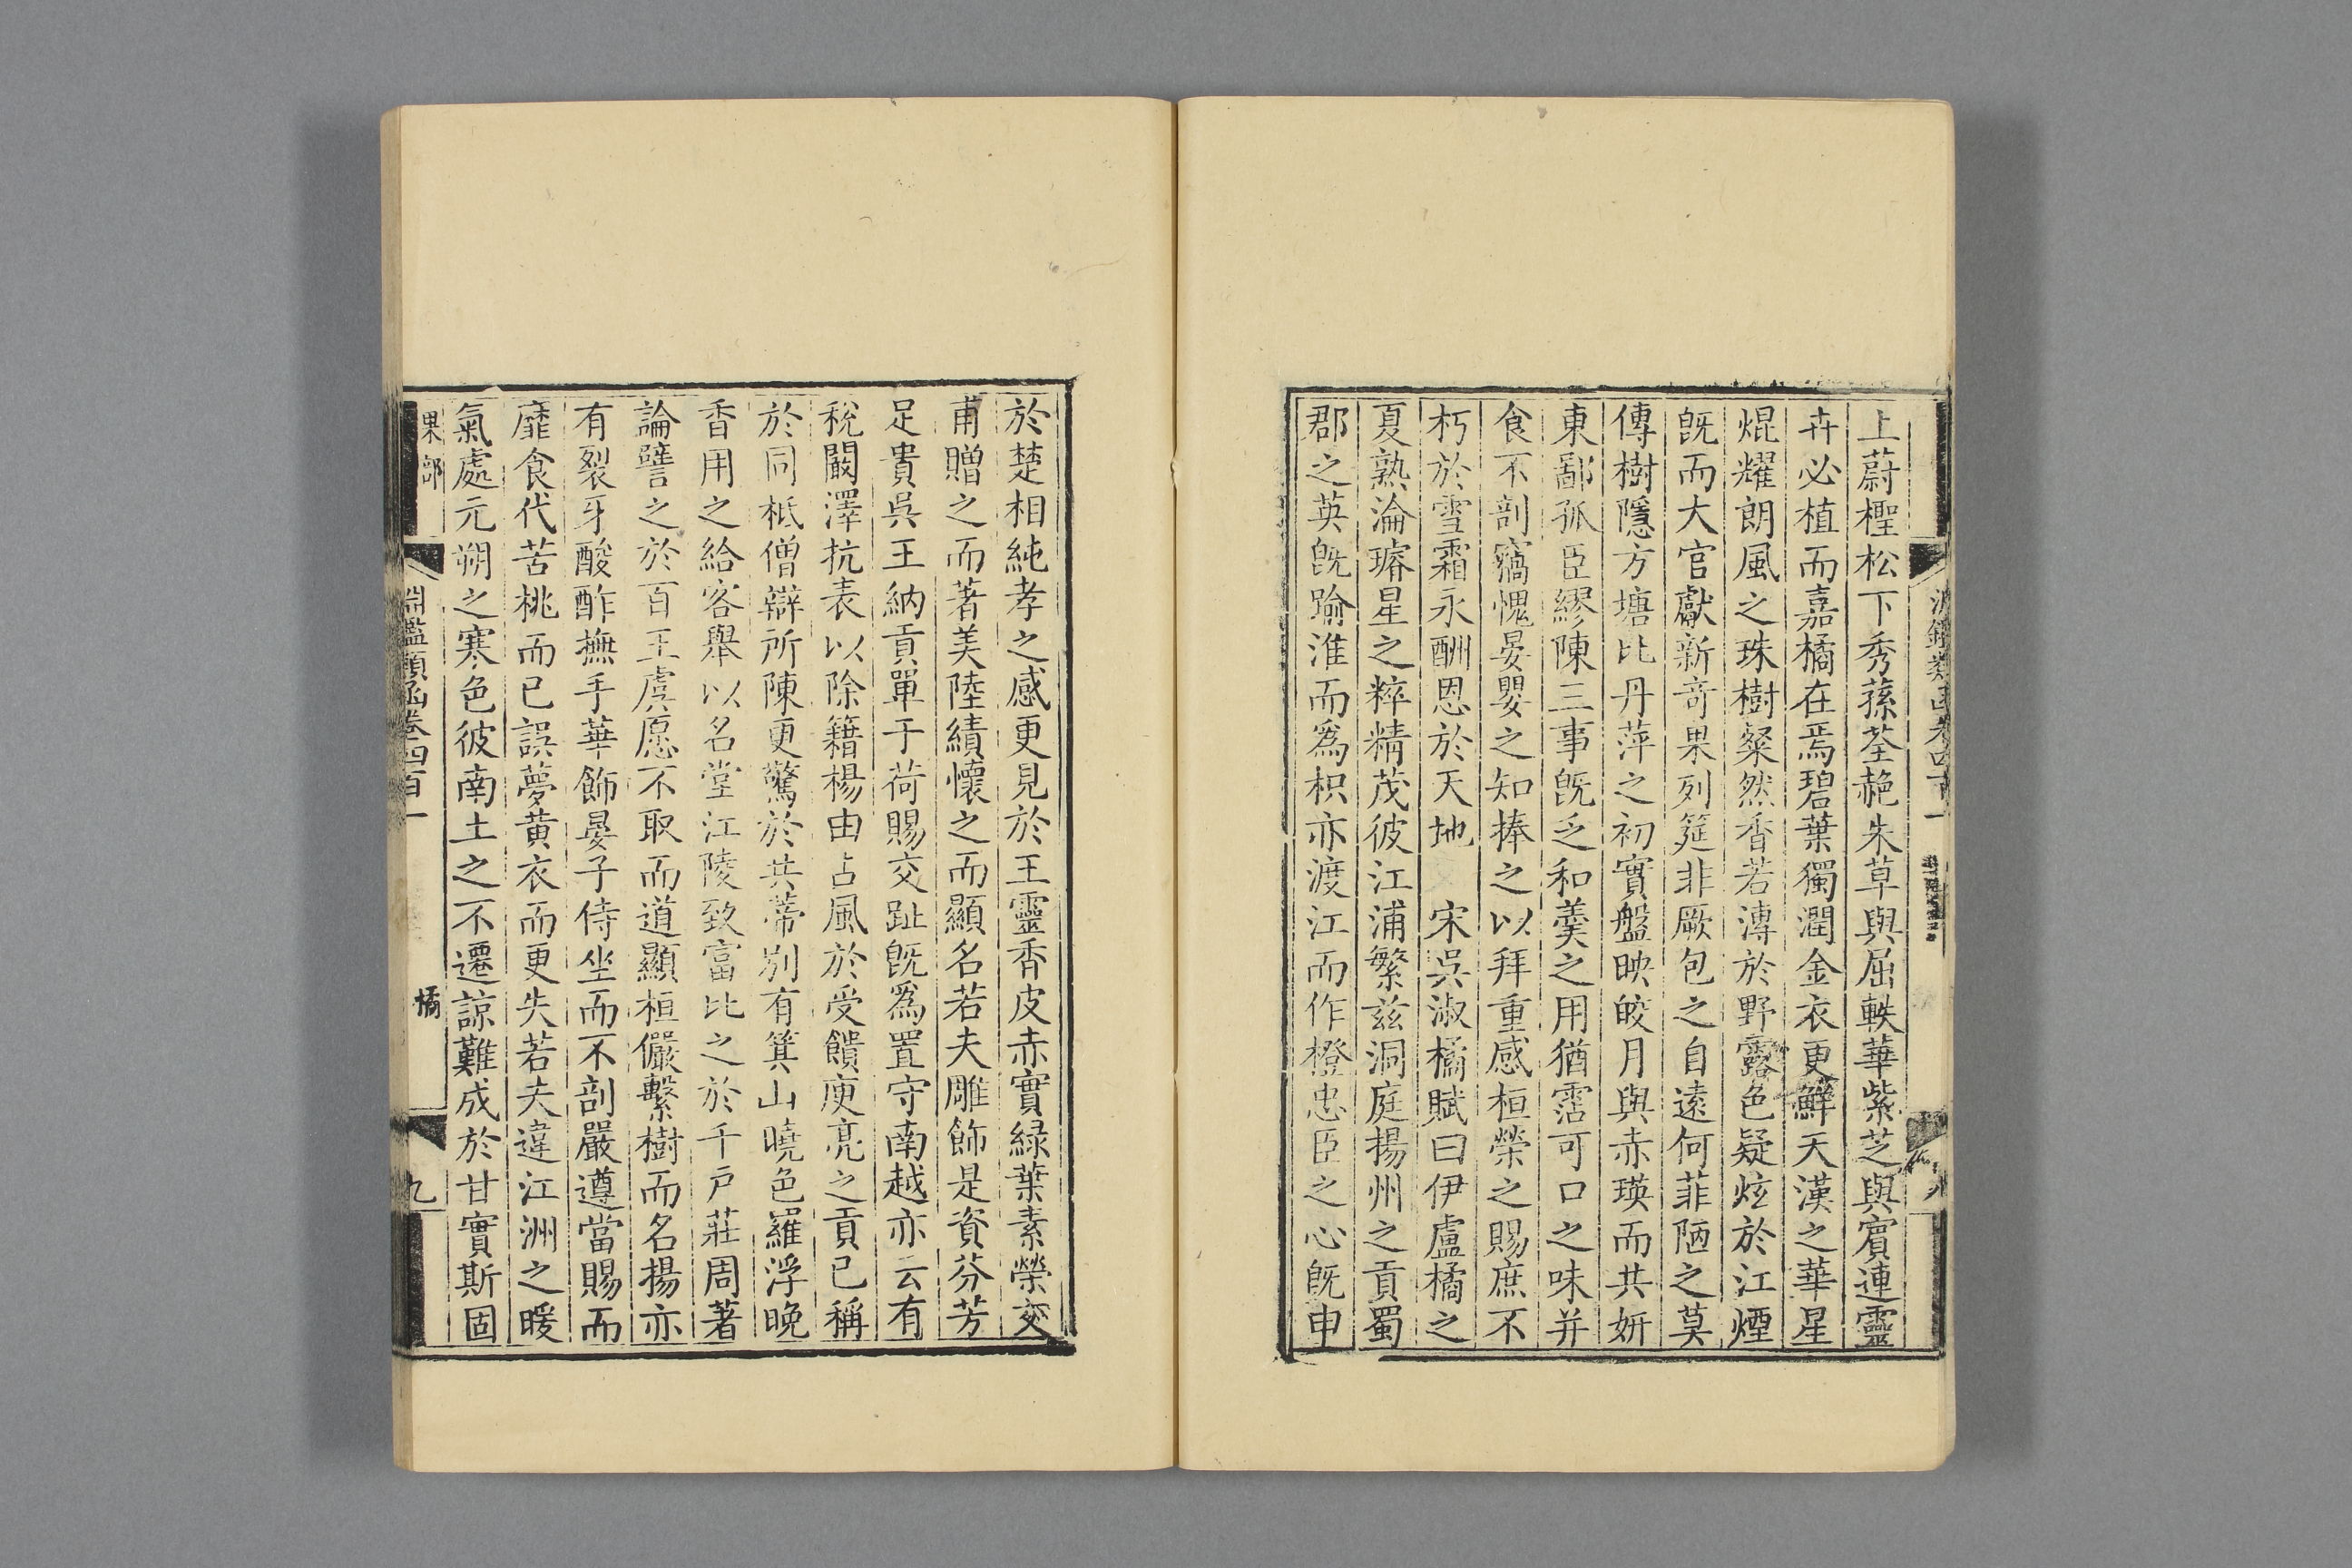 上蔚檉松下秀蓀荃赩朱草與屈軼華紫芝與賓連靈
卉必植而嘉橘在焉碧葉獨潤金衣更鮮天漢之華星
焜耀朗風之珠樹粲然香若漙於野露色疑炫於江煙
旣而大官獻新奇果列筵非厥包之自遠何菲陋之莫
傳樹隱方塘比丹萍之初實盤映皎月與赤瑛而共妍
東鄙孤臣繆陳三事旣乏和羮之用猶霑可口之味并
食不剖竊愧晏嬰之知捧之以拜重感桓榮之賜庶不
朽於雪霜永酬恩於天地 宋吳淑橘賦曰伊盧橘之
夏熟淪璿星之粹精茂彼江浦繁兹洞庭揚州之貢蜀
郡之英旣踰淮而爲枳亦渡江而作橙忠臣之心旣申
於楚相純孝之感更見於王靈香皮赤實緑葉素榮交
甫贈之而著美陸績懷之而顯名若夫雕飾是資芬芳
足貴吳王納貢單于荷賜交趾旣爲置守南越亦云有
稅闞澤抗表以除籍楊由占風於受饋庾亮之貢已稱
於同柢僧辯所陳更驚於共蒂别有箕山曉色羅浮晩
香用之給客舉以名堂江陵致富比之於千戸莊周著
論譬之於百王虞愿不取而道顯桓儼繫樹而名揚亦
有裂牙酸酢撫手華飾晏子侍坐而不剖嚴遵當賜而
靡食代苦桃而已誤夢黄衣而更失若夫違江洲之暖
氣處元朔之寒色彼南土之不遷諒難成於甘實斯固
果部
淵鑑類函卷四百一
橘
九